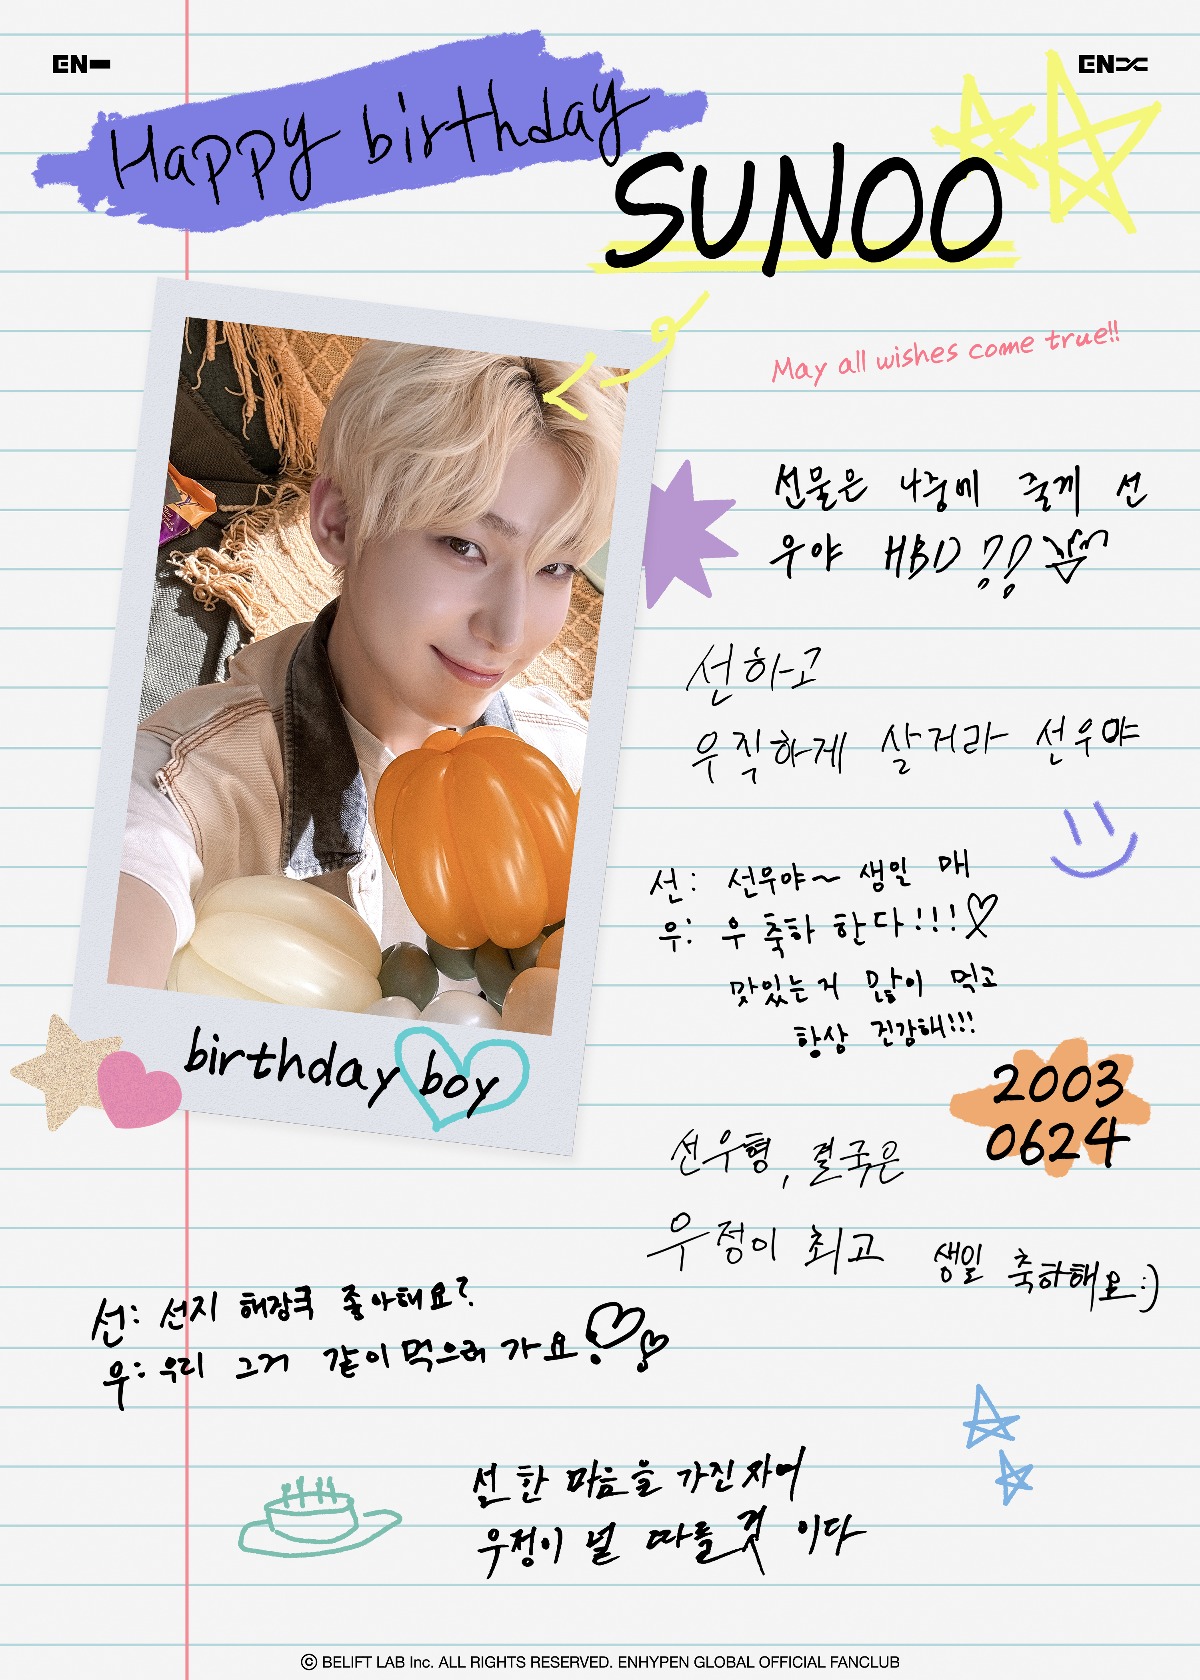 EN-
EN
Happy birthday
SUNOO
May all wishes come true!!
선물은 나중에 줄게 선
우야 HBD
선하고
우직하게 살거라 선우야
선: 선우야~ 생일 매
우: 우 축하 한다!!!♡
맛있는거 많이 먹고
항상 건강해!!!
birthday boy
2003
0624
선우형, 결국은
우정이 최고 생일 축하해요:)
선: 선지 해장국 좋아해요?
우: 우리 그거 같이 먹으러 가요
선한 마음을 가진 자여
우정이 널 따를 것 이다
© BELIFT LAB Inc. ALL RIGHTS RESERVED. ENHYPEN GLOBAL OFFICIAL FANCLUB